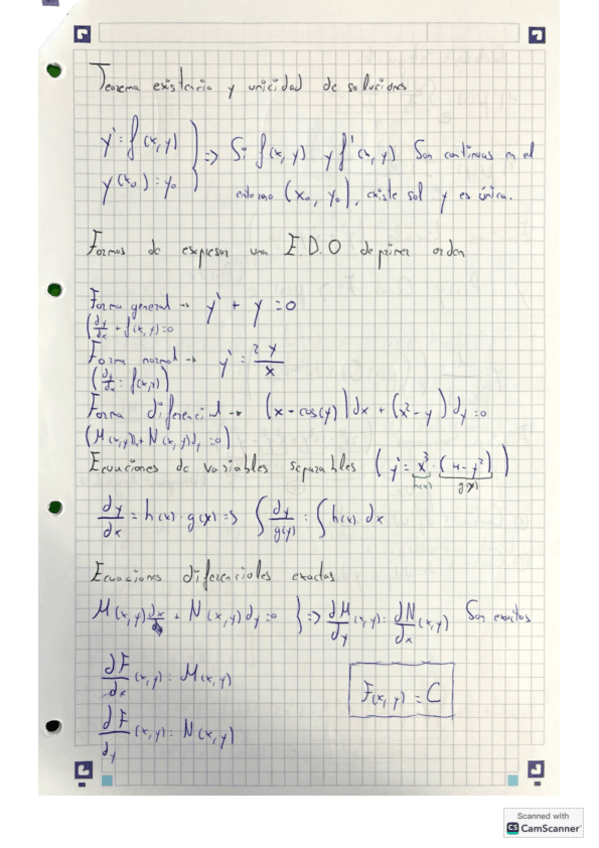 Teorema existencia y unicidad de soluciones
y' = f(x,y) } => Si f(x,y) y f'(x,y) Son continuas en el
y(x₀) = y₀ entorno (x₀, y₀), existe sol y es única.
Formas de expresar una E.D.O de primer orden
Forma general → y' + y = 0
(dy/dx + f(x,y) = 0
Forma normal → y' = 2y/x
(dy/dx = f(x,y))
Forma diferencial → (x - cos(y))dx + (x² - y)dy = 0
(M(x,y)dx + N(x,y)dy = 0)
Ecuaciones de variables separables (y' = x³ · (4 - y²))
h(x) g(x)
dy/dx = h(x) · g(x) => ∫ dy/g(y) = ∫ h(x) dx
Ecuaciones diferenciales exactas
M(x,y)dx + N(x,y)dy = 0 } => ∂M/∂y (x,y) = ∂N/∂x (x,y) Son exactas
∂F/∂x (x,y) = M(x,y)
F(x,y) = C
∂F/∂y (x,y) = N(x,y)
Scanned with
CS CamScanner